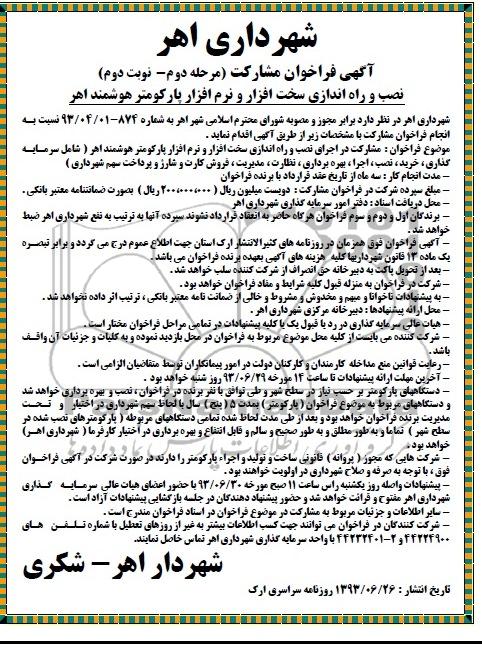 شهرداری اهر
آگهی فراخوان مشارکت (مرحله دوم- نوبت دوم)
نصب و راه اندازی سخت افزار و نرم افزار پارکومتر هوشمند اهر
شهرداری اهر در نظر دارد برابر مجوز و مصوبه شورای محترم اسلامی شهر اهر به شماره ۸۷۴-۹۳/۰۴/۰۱ نسبت به
انجام فراخوان مشارکت با مشخصات زیر از طریق آگهی اقدام نماید .
موضوع فراخوان : مشارکت در اجرای نصب و راه اندازی سخت افزار و نرم افزار پارکومتر هوشمند اهر ( شامل سرمایه
گذاری ، خرید، نصب ، اجرا ، بهره برداری ، نظارت ، مدیریت ، فروش کارت و شارژ و پرداخت سهم شهرداری )
- مدت انجام کار : سه ماه از تاریخ عقد قرارداد با برنده فراخوان
- مبلغ سپرده شرکت در فراخوان مشارکت : دویست میلیون ریال ( ۲۰۰،۰۰۰،۰۰۰ ریال ) بصورت ضمانتنامه معتبر بانکی .
- محل دریافت اسناد : دفتر امور سرمایه گذاری شهرداری اهر
- برندگان اول و دوم و سوم فراخوان هرگاه حاضر به انعقاد قرارداد نشوند سپرده آنها به ترتیب به نفع شهرداری اهر ضبط
خواهد شد .
- آگهی فراخوان فوق همزمان در روزنامه های کثیرالانتشار ارک استان جهت اطلاع عموم درج می گردد و برابر تبصره
یک ماده ۱۳ قانون شهرداریها کلیه هزینه های آگهی بعهده برنده فراخوان می باشد .
- بعد از تحویل پاکت به دبیرخانه حق انصراف از شرکت کننده سلب خواهد شد .
- شرکت در فراخوان به منزله قبول کلیه شرایط و مفاد فراخوان خواهد بود .
- به پیشنهادات ناخوانا و مبهم و مخدوش و مشروط و خالی از ضمانت نامه معتبر بانکی ، ترتیب اثر داده نخواهد شد .
- محل ارائه پیشنهادها : دبیرخانه مرکزی شهرداری اهر .
- هیات عالی سرمایه گذاری در رد یا قبول یک یا کلیه پیشنهادات در تمامی مراحل فراخوان مختار است .
- شرکت کننده می بایست از کلیه محل موضوع مربوط به فراخوان در محل بازدید نموده و به کلیات و جزئیات آن واقف
باشد .
- رعایت قوانین منع مداخله کارمندان و کارکنان دولت در امور پیمانکاران توسط متقاضیان الزامی است .
- آخرین مهلت ارائه پیشنهادات تا ساعت ۱۴ مورخه ۹۳/۰۶/۲۹ روز شنبه خواهد بود .
- دستگاههای پارکومتر بر حسب نیاز در سطح شهر و طی توافق با نفر برنده در فراخوان ، نصب و بهره برداری خواهد شد
و دستگاههای مربوط به موضوع فراخوان ( پارکومتر) بمدت ۵ ( پنج ) سال با لحاظ سهم شهرداری در اختیار و تحت
مدیریت برنده فراخوان خواهد بود و بعد از طی مدت لحاظ شده تمامی دستگاههای مربوطه ( پارکومتر های نصب شده در
سطح شهر ) تماما و به طور مطلق و به طور صحیح و سالم و قابل انتفاع و بهره برداری در اختیار کارفرما ( شهرداری اهر)
خواهد بود .
- شرکت هایی که مجوز ( پروانه ) قانونی ساخت و تولید و اجراء پارکومتر را دارند در صورت شرکت در آگهی فراخوان
فوق ، با توجه به صرفه و صلاح شهرداری در اولویت خواهند بود .
- پیشنهادات واصله روز یکشنبه راس ساعت ۱۱ صبح مورخه ۹۳/۰۶/۳۰ با حضور اعضای هیات عالی سرمایه گذاری
شهرداری اهر مفتوح و قرائت خواهد شد و حضور پیشنهاد دهندگان در جلسه بازگشایی پیشنهادات آزاد است .
- سایر اطلاعات و جزئیات مربوط به مشارکت در موضوع فراخوان در اسناد فراخوان مندرج است .
- شرکت کنندگان در فراخوان می توانند جهت کسب اطلاعات بیشتر به غیر از روزهای تعطیل با شماره تلفن های
۴۴۲۲۴۹۰۰ و ۲-۴۴۲۳۲۴۰۱ با واحد سرمایه گذاری شهرداری اهر تماس حاصل نمایند.
شهردار اهر- شکری
تاریخ انتشار : ۱۳۹۳/۰۶/۲۶ روزنامه سراسری ارک